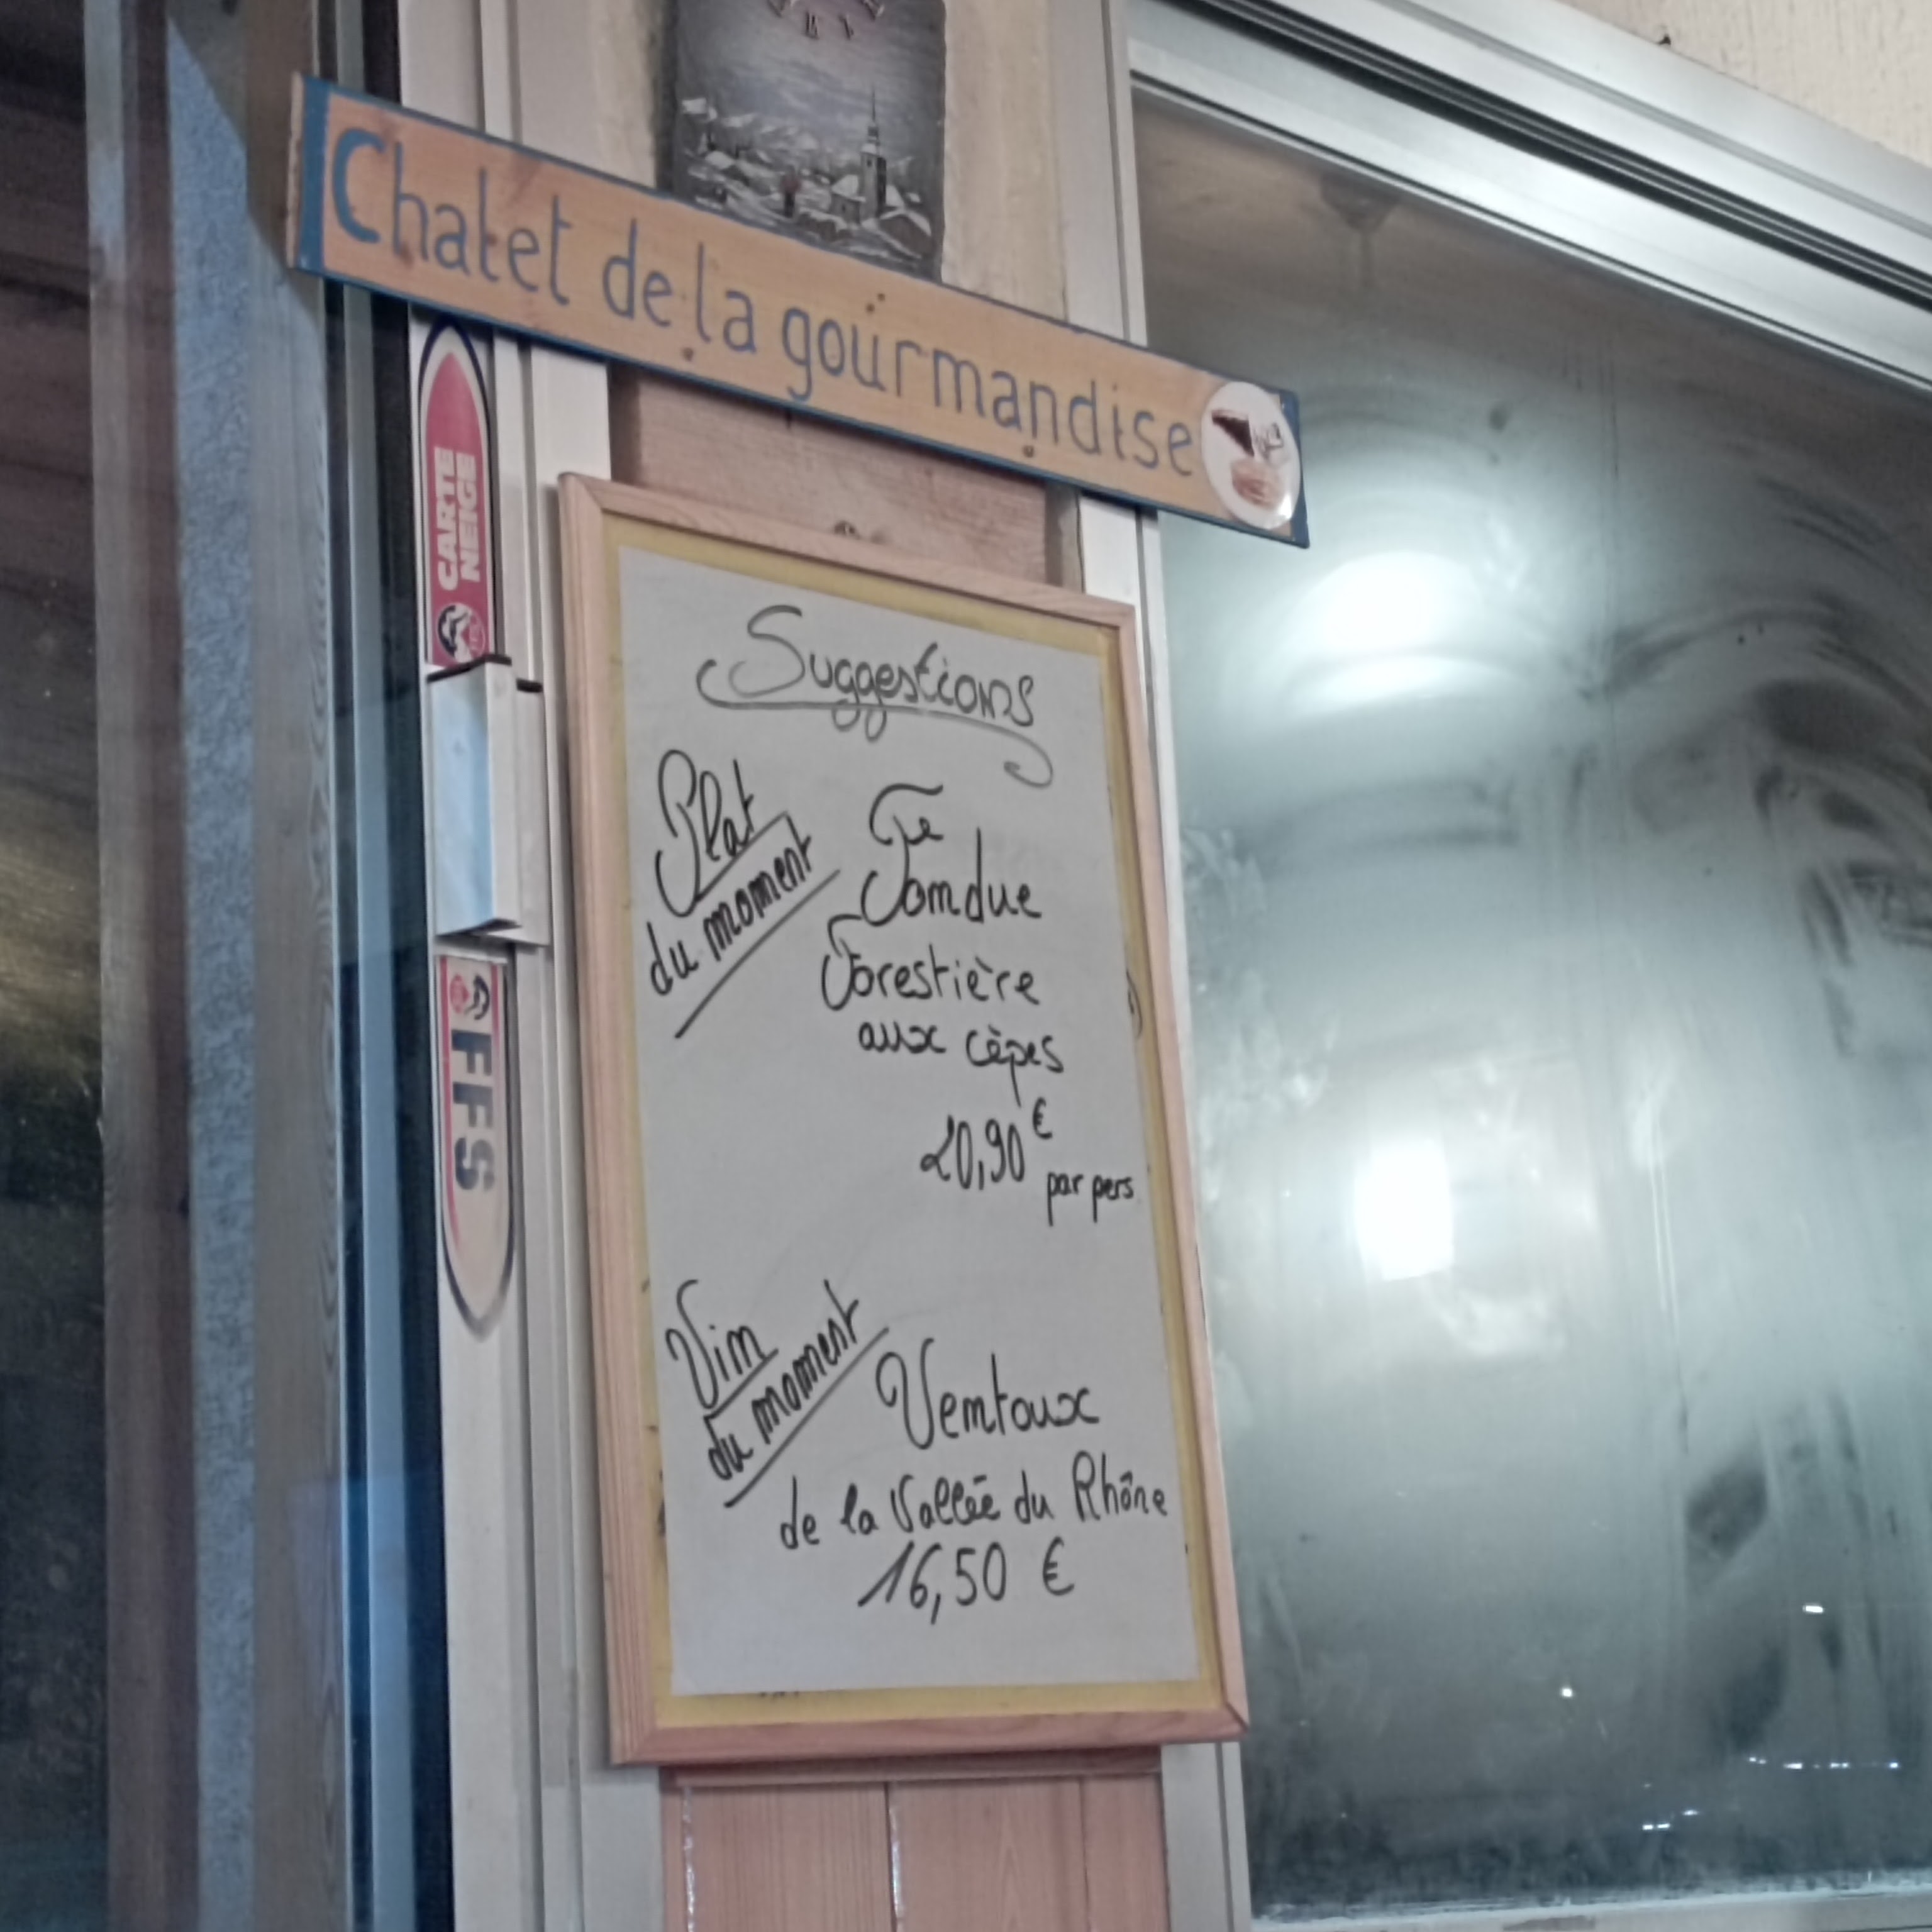 Chalet de la gourmandise
CARTE
NEIGE
FFS
Suggestions
Plat
du moment
La
Fondue
Forestière
aux cèpes
20,90 €
par pers
Vin
du moment
Ventoux
de la Vallée du Rhône
16,50 €